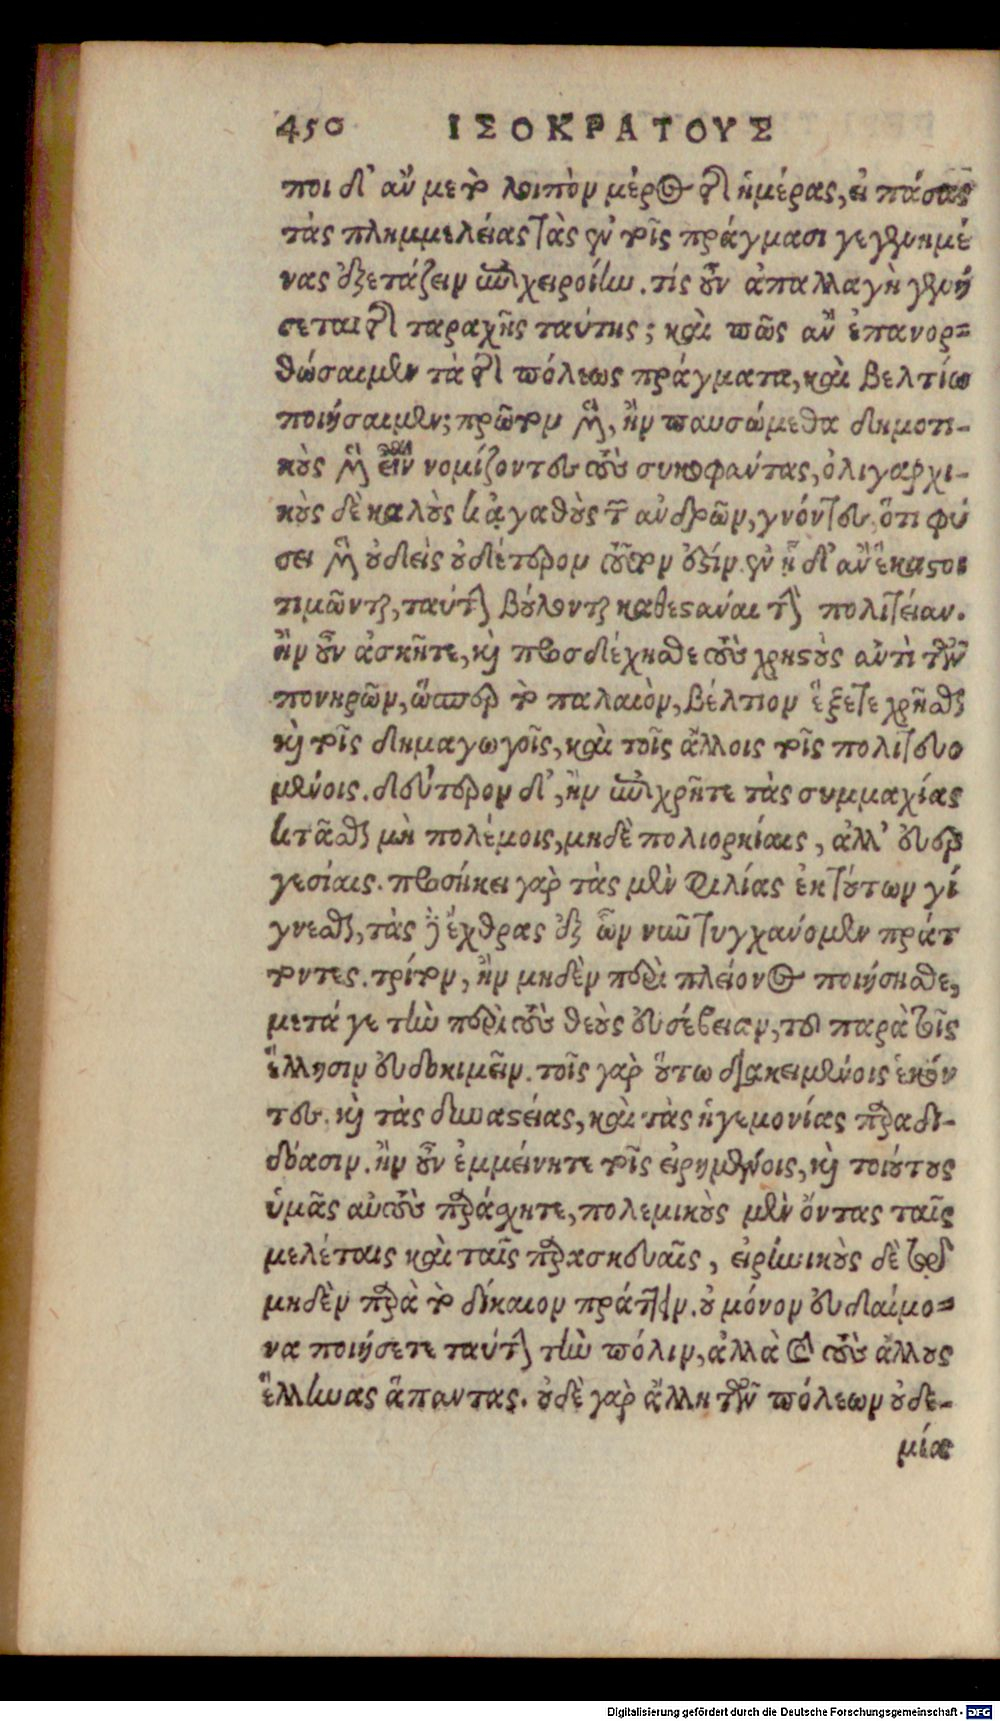 450 ΙΣΟΚΡΑΤΟΥΣ
ποι δ' ἄν με τὸ λοιπὸν μέρος τῆς ἡμέρας, εἰ πάσας
τὰς πλημμελείας τὰς ἐν τοῖς πράγμασι γεγενημέ
νας ἐξετάζειν ἐπιχειροίην. τίς οὖν ἀπαλλαγὴ γενή
σεται τῆς ταραχῆς ταύτης; καὶ πῶς ἂν ἐπανορ-
θώσαιμεν τὰ τῆς πόλεως πράγματα, καὶ βελτίω
ποιήσαιμεν; πρῶτον μὲν, ἢν παυσώμεθα δημοτι-
κοὺς μὲν εἶναι νομίζοντες τοὺς συκοφάντας, ὀλιγαρχι-
κοὺς δὲ καλοὺς κἀγαθοὺς τῶν ἀνδρῶν, γνόντες, ὅτι φύ
σει μὲν οὐδεὶς οὐδέτερον τούτων ἐστίν. ἐν ᾗ δ' ἂν ἕκαστοι
τιμῶνται, ταύτην βούλονται καθεστάναι τὴν πολιτείαν.
ἢν οὖν ἀσκῆτε, καὶ προσδέχησθε τοὺς χρηστοὺς ἀντὶ τῶν
πονηρῶν, ὥσπερ τὸ παλαιὸν, βέλτιον ἕξετε χρῆσθαι
καὶ τοῖς δημαγωγοῖς, καὶ τοῖς ἄλλοις τοῖς πολιτευο
μένοις. δεύτερον δ', ἢν ἐπιχρῆτε τὰς συμμαχίας
κτᾶσθαι μὴ πολέμοις, μηδὲ πολιορκίαις, ἀλλ' εὐερ
γεσίαις. προσήκει γὰρ τὰς μὲν φιλίας ἐκ τούτων γί
γνεσθαι, τὰς δὲ ἔχθρας ἐξ ὧν νῦν τυγχάνομεν πράτ
τοντες. τρίτον, ἢν μηδὲν περὶ πλείονος ποιήσησθε,
μετά γε τὴν περὶ τοὺς θεοὺς εὐσέβειαν, τοῦ παρὰ τοῖς
ἕλλησιν εὐδοκιμεῖν. τοῖς γὰρ οὕτω διακειμένοις ἑκόν
τες. καὶ τὰς δυναστείας, καὶ τὰς ἡγεμονίας παραδι-
δόασιν. ἢν οὖν ἐμμείνητε τοῖς εἰρημένοις, καὶ τοιούτους
ὑμᾶς αὐτοὺς παράσχητε, πολεμικοὺς μὲν ὄντας ταῖς
μελέταις καὶ ταῖς παρασκευαῖς, εἰρηνικοὺς δὲ τῷ
μηδὲν παρὰ τὸ δίκαιον πράττειν. οὐ μόνον εὐδαίμο-
να ποιήσετε ταύτην τὴν πόλιν, ἀλλὰ καὶ τοὺς ἄλλους
ἕλληνας ἅπαντας. οὐδὲ γὰρ ἄλλη τῶν πόλεων οὐδε-
μία
Digitalisierung gefördert durch die Deutsche Forschungsgemeinschaft - DFG